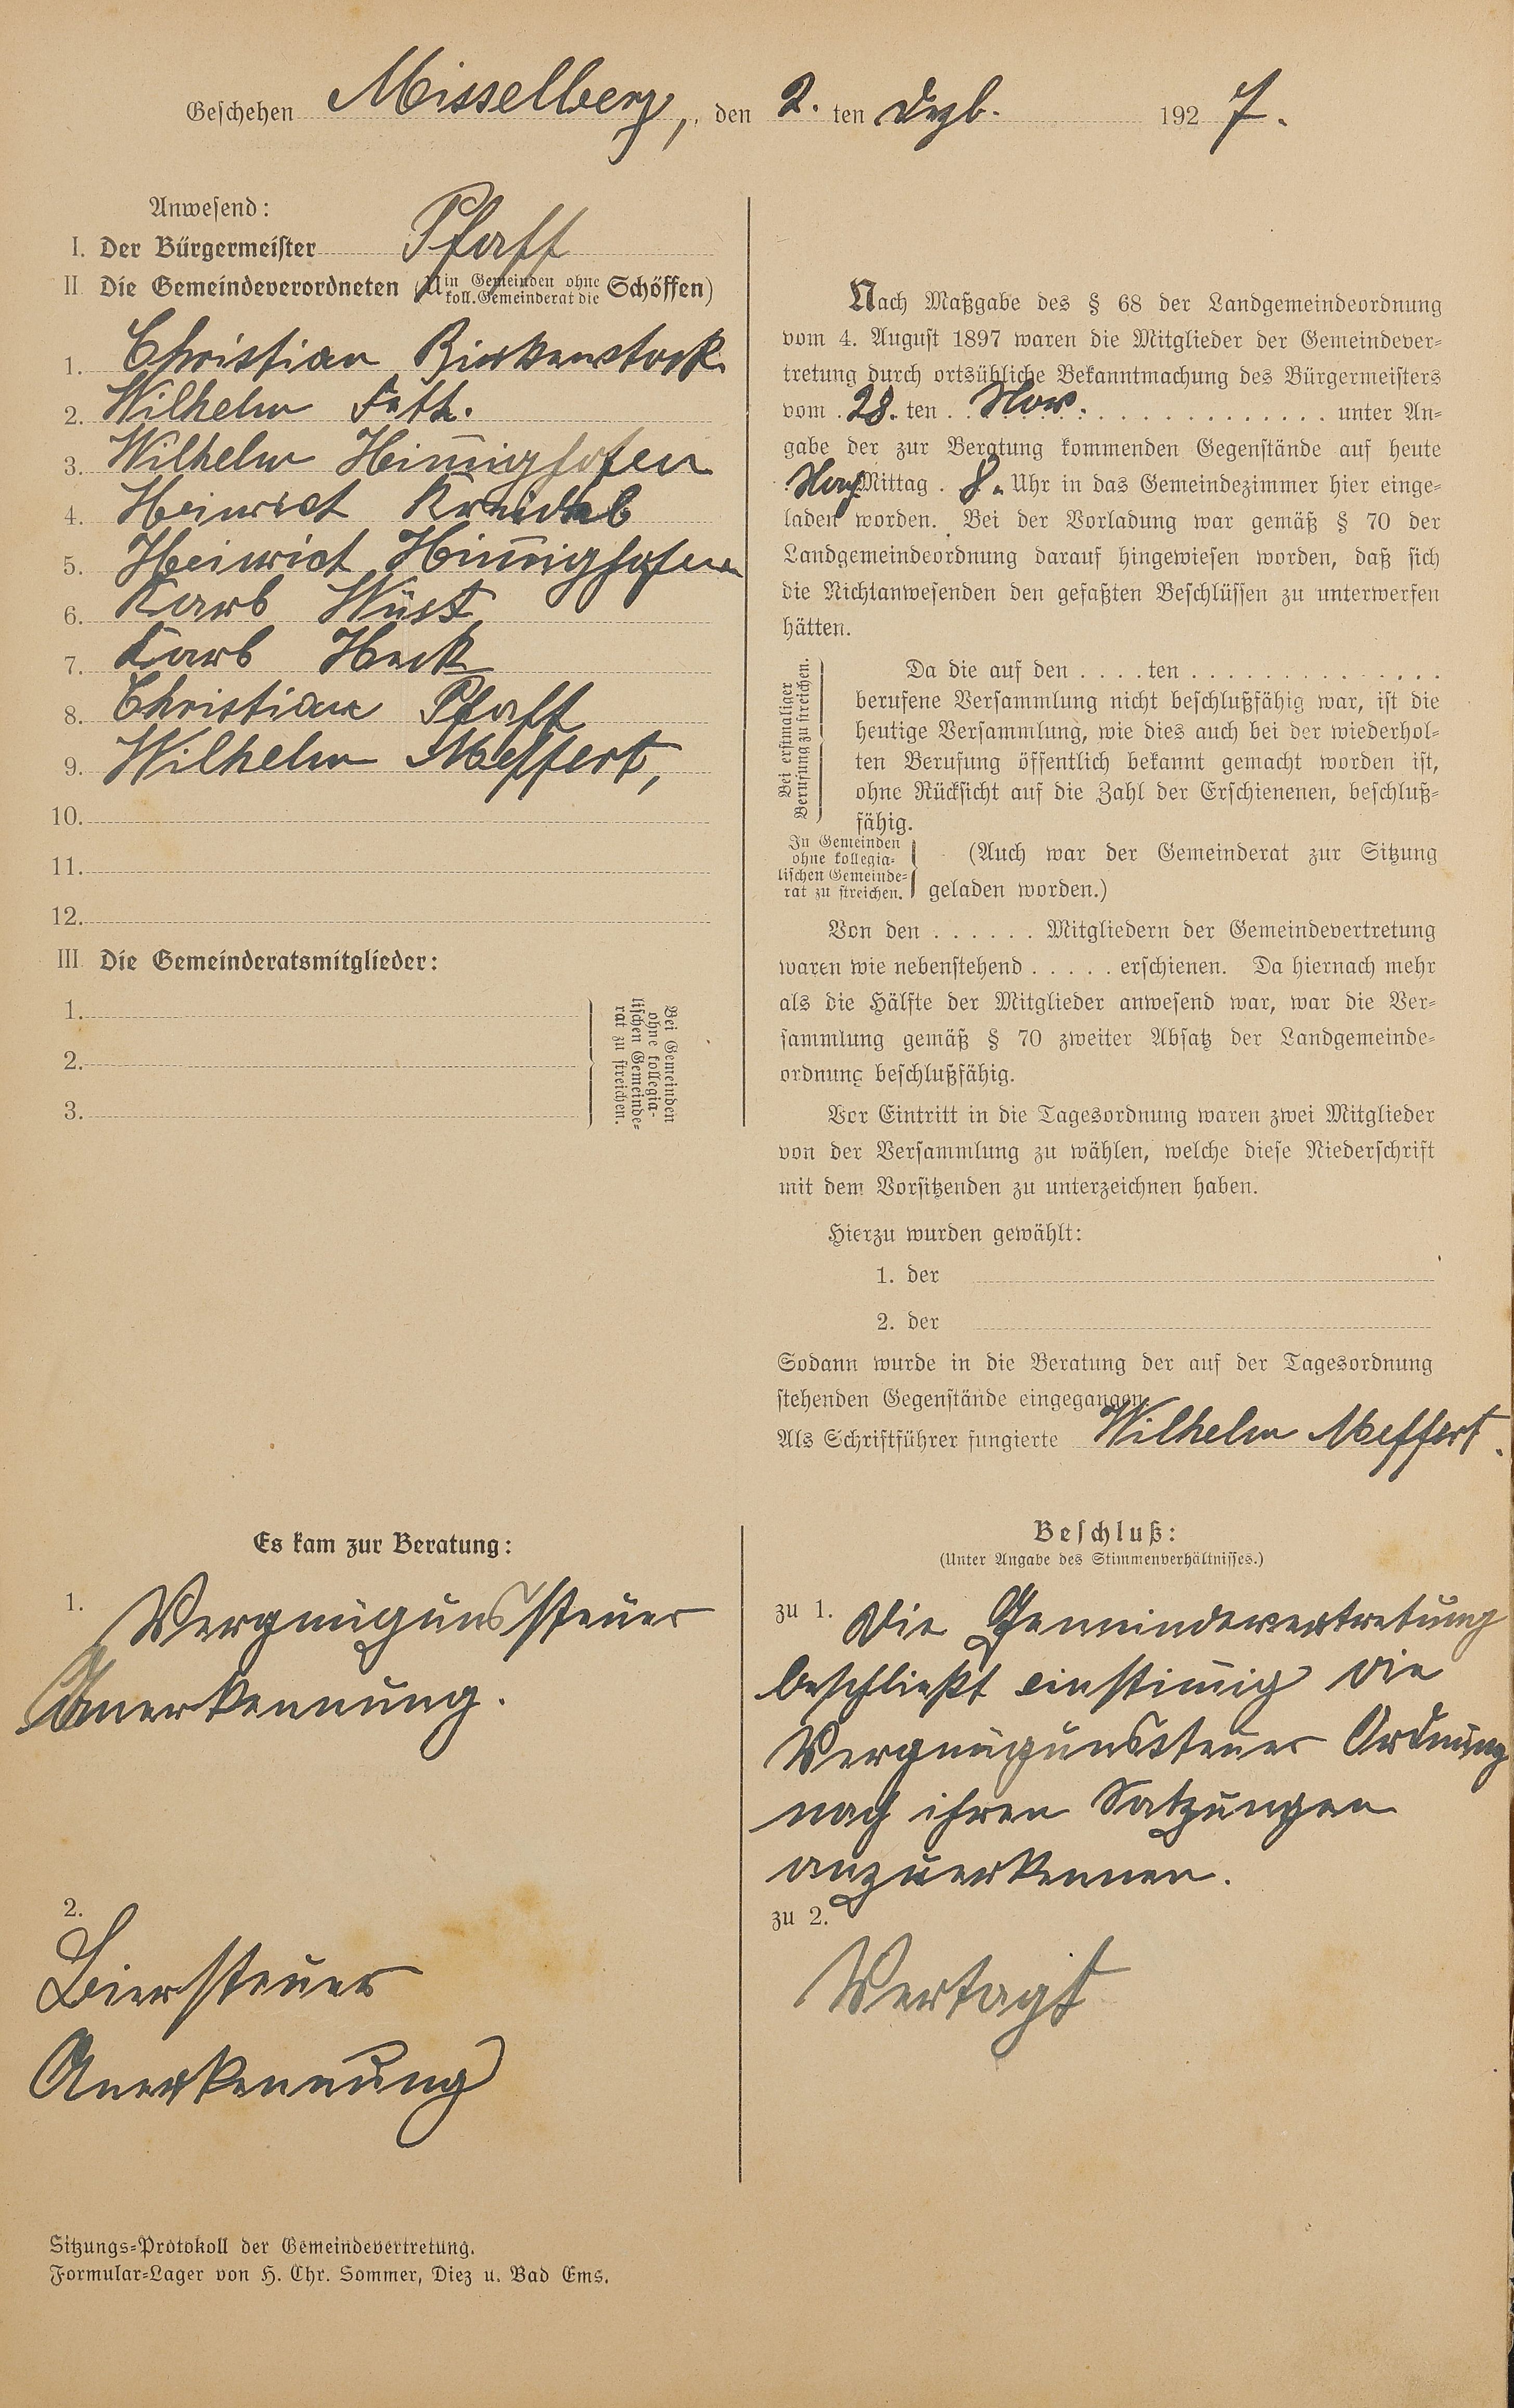 Geschehen Misselberg, den 2. ten Dezb. 1927.
Anwesend:
I. Der Bürgermeister Pfaff
II Die Gemeindeverordneten (U in Gemeinden ohne koll. Gemeinderat die Schöffen)
1. Christian Birkenstock
2. Wilhelm Fett.
3. Wilhelm Hinnighofen
4. Heinrich Kreidel
5. Heinrich Hinnighofen
6. Karl Wüst
7. Karl Heck
8. Christian Pfaff
9. Wilhelm Meffert,
10.
11.
12.
III Die Gemeinderatsmitglieder:
1.
2.
3.
Bei Gemeinden
ohne kollegia-
lischen Gemeinde-
rat zu streichen.
Nach Maßgabe des § 68 der Landgemeindeordnung
vom 4. August 1897 waren die Mitglieder der Gemeindever-
tretung durch ortsübliche Bekanntmachung des Bürgermeisters
vom 28. ten Nov. unter An-
gabe der zur Beratung kommenden Gegenstände auf heute
Nach Mittag 8. Uhr in das Gemeindezimmer hier einge-
laden worden. Bei der Vorladung war gemäß § 70 der
Landgemeindeordnung darauf hingewiesen worden, daß sich
die Nichtanwesenden den gefaßten Beschlüssen zu unterwerfen
hätten.
Bei erstmaliger
Berufung zu streichen.
Da die auf den . . . . ten . . . . . . . . . . . . . .
berufene Versammlung nicht beschlußfähig war, ist die
heutige Versammlung, wie dies auch bei der wiederhol-
ten Berufung öffentlich bekannt gemacht worden ist,
ohne Rücksicht auf die Zahl der Erschienenen, beschluß-
fähig.
In Gemeinden
ohne kollegia-
lischen Gemeinde-
rat zu streichen.
(Auch war der Gemeinderat zur Sitzung
geladen worden.)
Von den . . . . . . Mitgliedern der Gemeindevertretung
waren wie nebenstehend . . . . . erschienen. Da hiernach mehr
als die Hälfte der Mitglieder anwesend war, war die Ver-
sammlung gemäß § 70 zweiter Absatz der Landgemeinde-
ordnung beschlußfähig.
Vor Eintritt in die Tagesordnung waren zwei Mitglieder
von der Versammlung zu wählen, welche diese Niederschrift
mit dem Vorsitzenden zu unterzeichnen haben.
Hierzu wurden gewählt:
1. der
2. der
Sodann wurde in die Beratung der auf der Tagesordnung
stehenden Gegenstände eingegangen.
Als Schriftführer fungierte Wilhelm Meffert.
Es kam zur Beratung:
1. Vergnügunssteuer
Anerkennung.
2.
Biersteuer
Anerkennung
Beschluß:
(Unter Angabe des Stimmenverhältnisses.)
zu 1. Die Gemeindevertretung
beschließt einstimig die
Vergnügunssteuer Ordnung
nach ihren Satzungen
anzuerkennen.
zu 2.
Vertagt
Sitzungs-Protokoll der Gemeindevertretung.
Formular-Lager von H. Chr. Sommer, Diez u. Bad Ems.